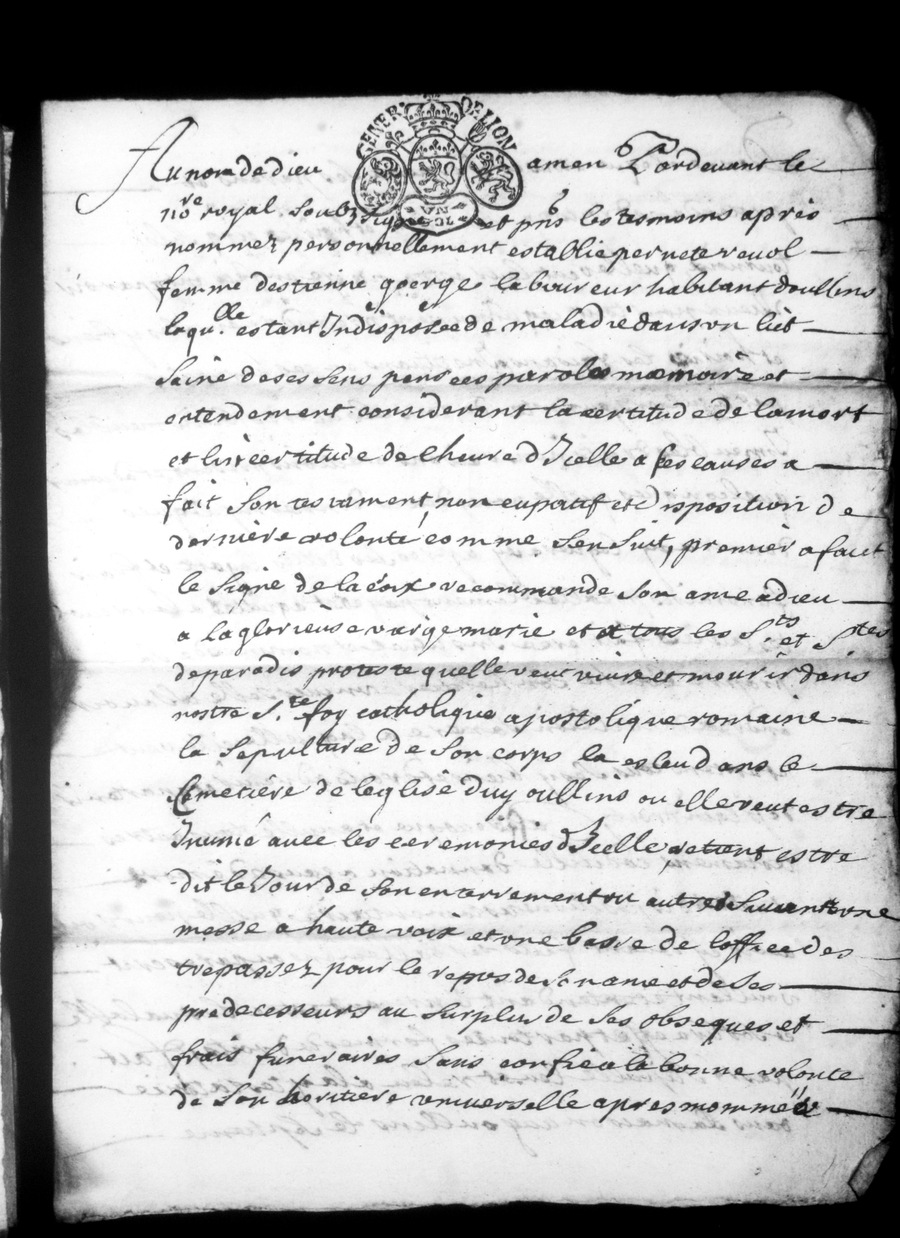 GENER DE LION
Au nom de dieu amen Pardevant le
nore royal soubzsigne et pnts les tesmoins apres
nommez personnellement establie pernete revol
femme destienne george laboureur habitant doullins
laqulle estant Indisposée de maladie dans un lict
saine de ses sens pensees paroles memoire et
entendement considerant la certitude de la mort
et lincertitude de lheure dIcelle a ses causes a
fait son testament noncupatif et disposition de
derniere volonté comme sensuit, premier a faict
le signe de la croix recommande son ame a dieu
a la glorieuse vierge marie et a tous les Sts et Stes
de paradis proteste quelle veut vivre et mourir dans
nostre Ste foy catholique apostolique romaine
la sepulture de son corps la esleu dans le
Cemetiere de leglise duy oullins ou elle veut estre
Inumé avec les ceremonies dIcelle, estre
dit le Jour de son enterrement ou autre suivant une
messe a haute voix et une basse de loffice des
trepassez pour le repos de son ame et de ses
predecesseurs au surplus de ses obseques et
frais funeraires sans confie a la bonne volonte
de son heritiere universelle apres nommée